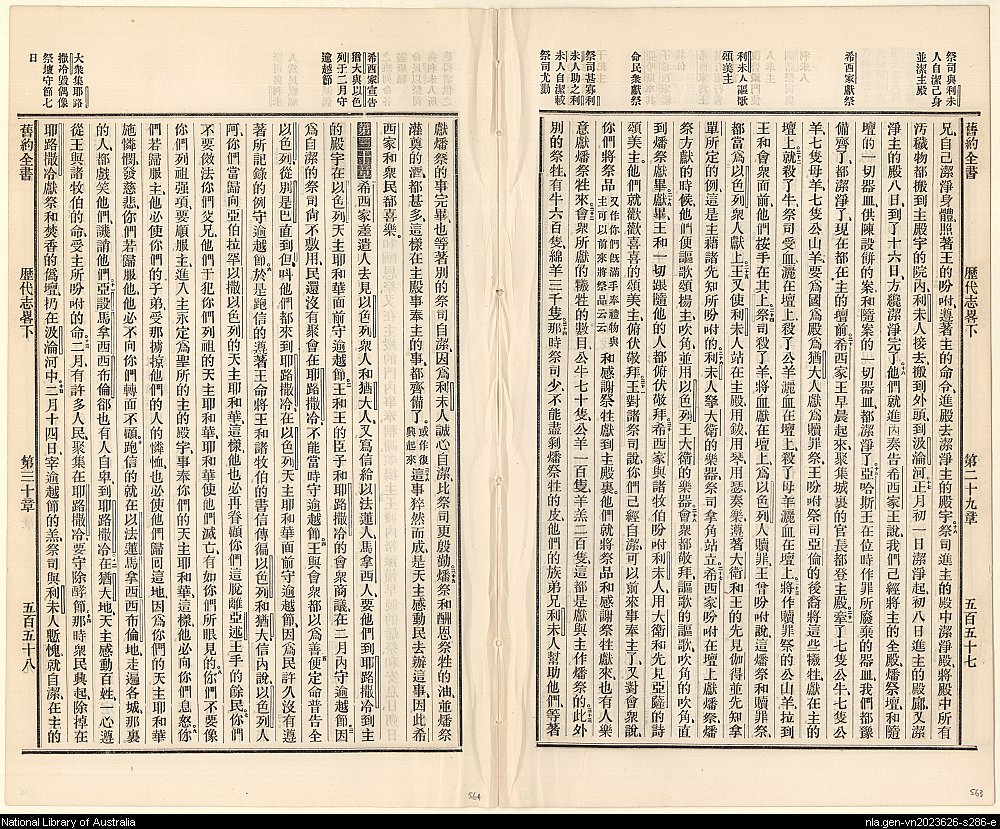 祭司與利未
人自潔己身
並潔主殿
希西家獻祭
利未人謳歌
頌美主
命民衆獻祭
祭司甚寡利
未人助之利
未人自潔較
祭司尤勤
舊約全書 歷代志畧下 第二十九章 五百五十七
兄自己潔淨身體照著王的吩咐遵著主的命令進殿去潔淨主的殿宇祭司進主的殿中潔淨殿將殿中所有
汚穢物都搬到主殿宇的院內利未人接去搬到外頭到汲淪河正月初一日潔淨起初八日進主的殿廊又潔
淨主的殿八日到了十六日方纔潔淨完了他們就進內奏告希西家王說我們已經將主的全殿燔祭壇和隨
壇的一切器皿供陳設餅的案和隨案的一切器皿都潔淨了亞哈斯王在位時作罪所廢棄的器皿我們都豫
備齊了都潔淨了現在都在主的壇前希西家王早晨起來聚集城裏的官長都登主殿牽了七隻公牛七隻公
羊七隻母羊七隻公山羊要爲國爲殿爲猶大人獻爲贖罪祭王吩咐祭司亞倫的後裔將這些犧牲獻在主的
壇上就殺了牛祭司受血灑在壇上殺了公羊灑血在壇上殺了母羊灑血在壇上將作贖罪祭的公山羊拉到
王和會衆面前他們按手在其上祭司殺了羊將血獻在壇上爲以色列人贖罪王曾吩咐說這燔祭和贖罪祭
都當爲以色列衆人獻上王又使利未人站在主殿用鈸用琴用瑟奏樂遵著大衛和王的先見伽得並先知拿
單所定的例這是主藉諸先知所吩咐的利未人拏大衛的樂器祭司拿角站立希西家吩咐在壇上獻燔祭燔
祭方獻的時候他們便謳歌頌揚主吹角並用以色列王大衛的樂器會衆都敬拜謳歌的謳歌吹角的吹角直
到燔祭獻畢獻畢王和一切跟隨他的人都俯伏敬拜希西家與諸牧伯吩咐利未人用大衛和先見亞薩的詩
頌美主他們就歡歡喜喜的頌美主俯伏敬拜王對諸祭司說你們已經自潔可以前來事奉主了又對會衆說
你們將祭品又作你們旣滿手奉禮物與主可以前來將祭品云云和感謝祭牲獻到主殿裏他們就將祭品和感謝祭牲獻來也有人樂
意獻燔祭牲來會衆所獻的犧牲的數目公牛七十隻公羊一百隻羊羔二百隻這都是獻與主作燔祭的此外
別的祭牲有牛六百隻綿羊三千隻那時祭司少不能盡剝燔祭牲的皮他們的族弟兄利未人幫助他們等著
希西家宣告
猶大與以色
列于二月守
逾越節
大衆集耶路
撒冷毀偶像
祭壇守節七
日
獻燔祭的事完畢也等著別的祭司自潔因爲利未人誠心自潔比祭司更殷勤燔祭和酬恩祭牲的油並燔祭
灌奠的酒都甚多這樣在主殿事奉主的事都齊備了或作復興起來這事猝然而成是天主感動民去辦這事因此希
西家和衆民都喜樂
第三十章希西家差遣人去見以色列衆人和猶大人又爲信給以法蓮人馬拿西人要他們到耶路撒冷到主
的殿宇在以色列天主耶和華面前守逾越節王和王的臣子和耶路撒冷的會衆商議在二月內守逾越節因
爲自潔的祭司尙不敷用民還沒有聚會在耶路撒冷不能當時守逾越節王與會衆都以爲善便定命普告全
以色列從別是巴直到但呌他們都來到耶路撒冷在以色列天主耶和華面前守逾越節因爲民許久沒有遵
著所記錄的例守逾越節於是跑信的遵著王命將王和諸牧伯的書信傳徧以色列和猶大信內說以色列人
阿你們當歸向亞伯拉罕以撒以色列的天主耶和華這樣他也必再眷顧你們這脫離亞述王手的餘民你們
不要傚法你們父兄他們干犯你們列祖的天主耶和華耶和華使他們滅亡有如你們所眼見的你們不要像
你們列祖强項要順服主進入主永定爲聖所的主的殿宇事奉你們的天主耶和華這樣他必向你們息怒你
們若歸服主他必使你們的子弟受那擄掠他們的人的憐恤也必使他們歸回這地因爲你們的天主耶和華
施憐憫發慈悲你們若歸服他他必不向你們轉面不顧跑信的就在以法蓮馬拿西西布倫地走遍各城那裏
的人都戲笑他們譏誚他們亞設馬拿西西布倫郤也有人自卑到耶路撒冷在猶大地天主感動百姓一心遵
從王與諸牧伯的命受主所吩咐的命二月有許多人民聚集在耶路撒冷要守除酵節那時衆民興起除掉在
耶路撒冷獻祭和焚香的僞壇扔在汲淪河中二月十四日宰逾越節的羔祭司與利未人慙愧就自潔在主的
舊約全書 歷代志畧下 第三十章 五百五十八
564
563
National Library of Australia
nla.gen-vn2023626-s286-e